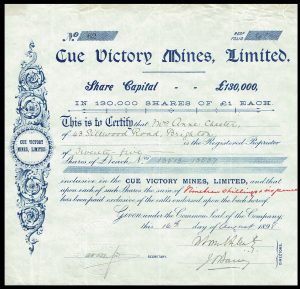 No. 62
Cue Victory Mines, Limited.
Share Capital - - £130,000,
IN 130,000 SHARES OF £1 EACH.
This is to Certify that Mrs Anne
of 63 Road, Brighton
is the Registered Proprietor
of Seventy five
Shares of £1 each
CUE VICTORY MINES, LIMITED.
inclusive in the CUE VICTORY MINES, LIMITED, and that
upon each of such Shares the sum of Nineteen shillings
has been paid exclusive of the calls endorsed upon the back hereof.
Given under the Common Seal of the Company,
this 16th day of August 189
SECRETARY.
DIRECTORS.